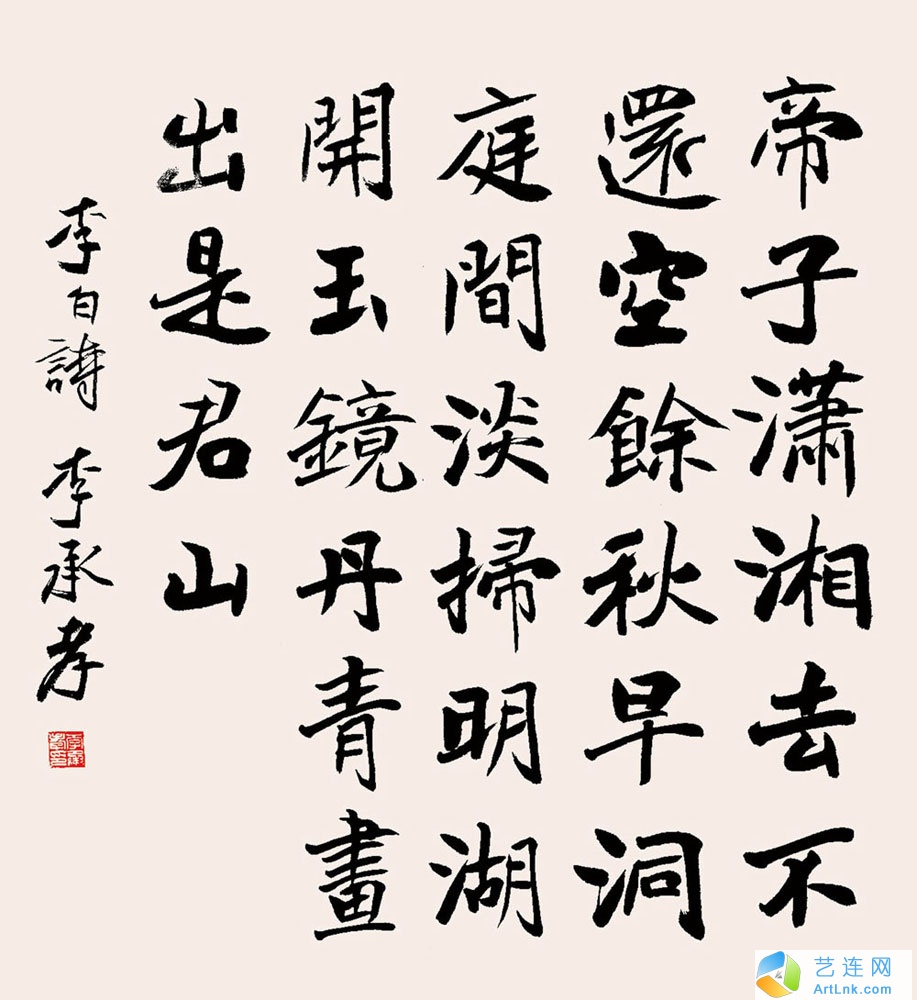 帝子瀟湘去不
還空餘秋早洞
庭間淡掃明湖
開玉鏡丹青畫
出是君山
李白詩 李承孝
艺连网
ArtLnk.com